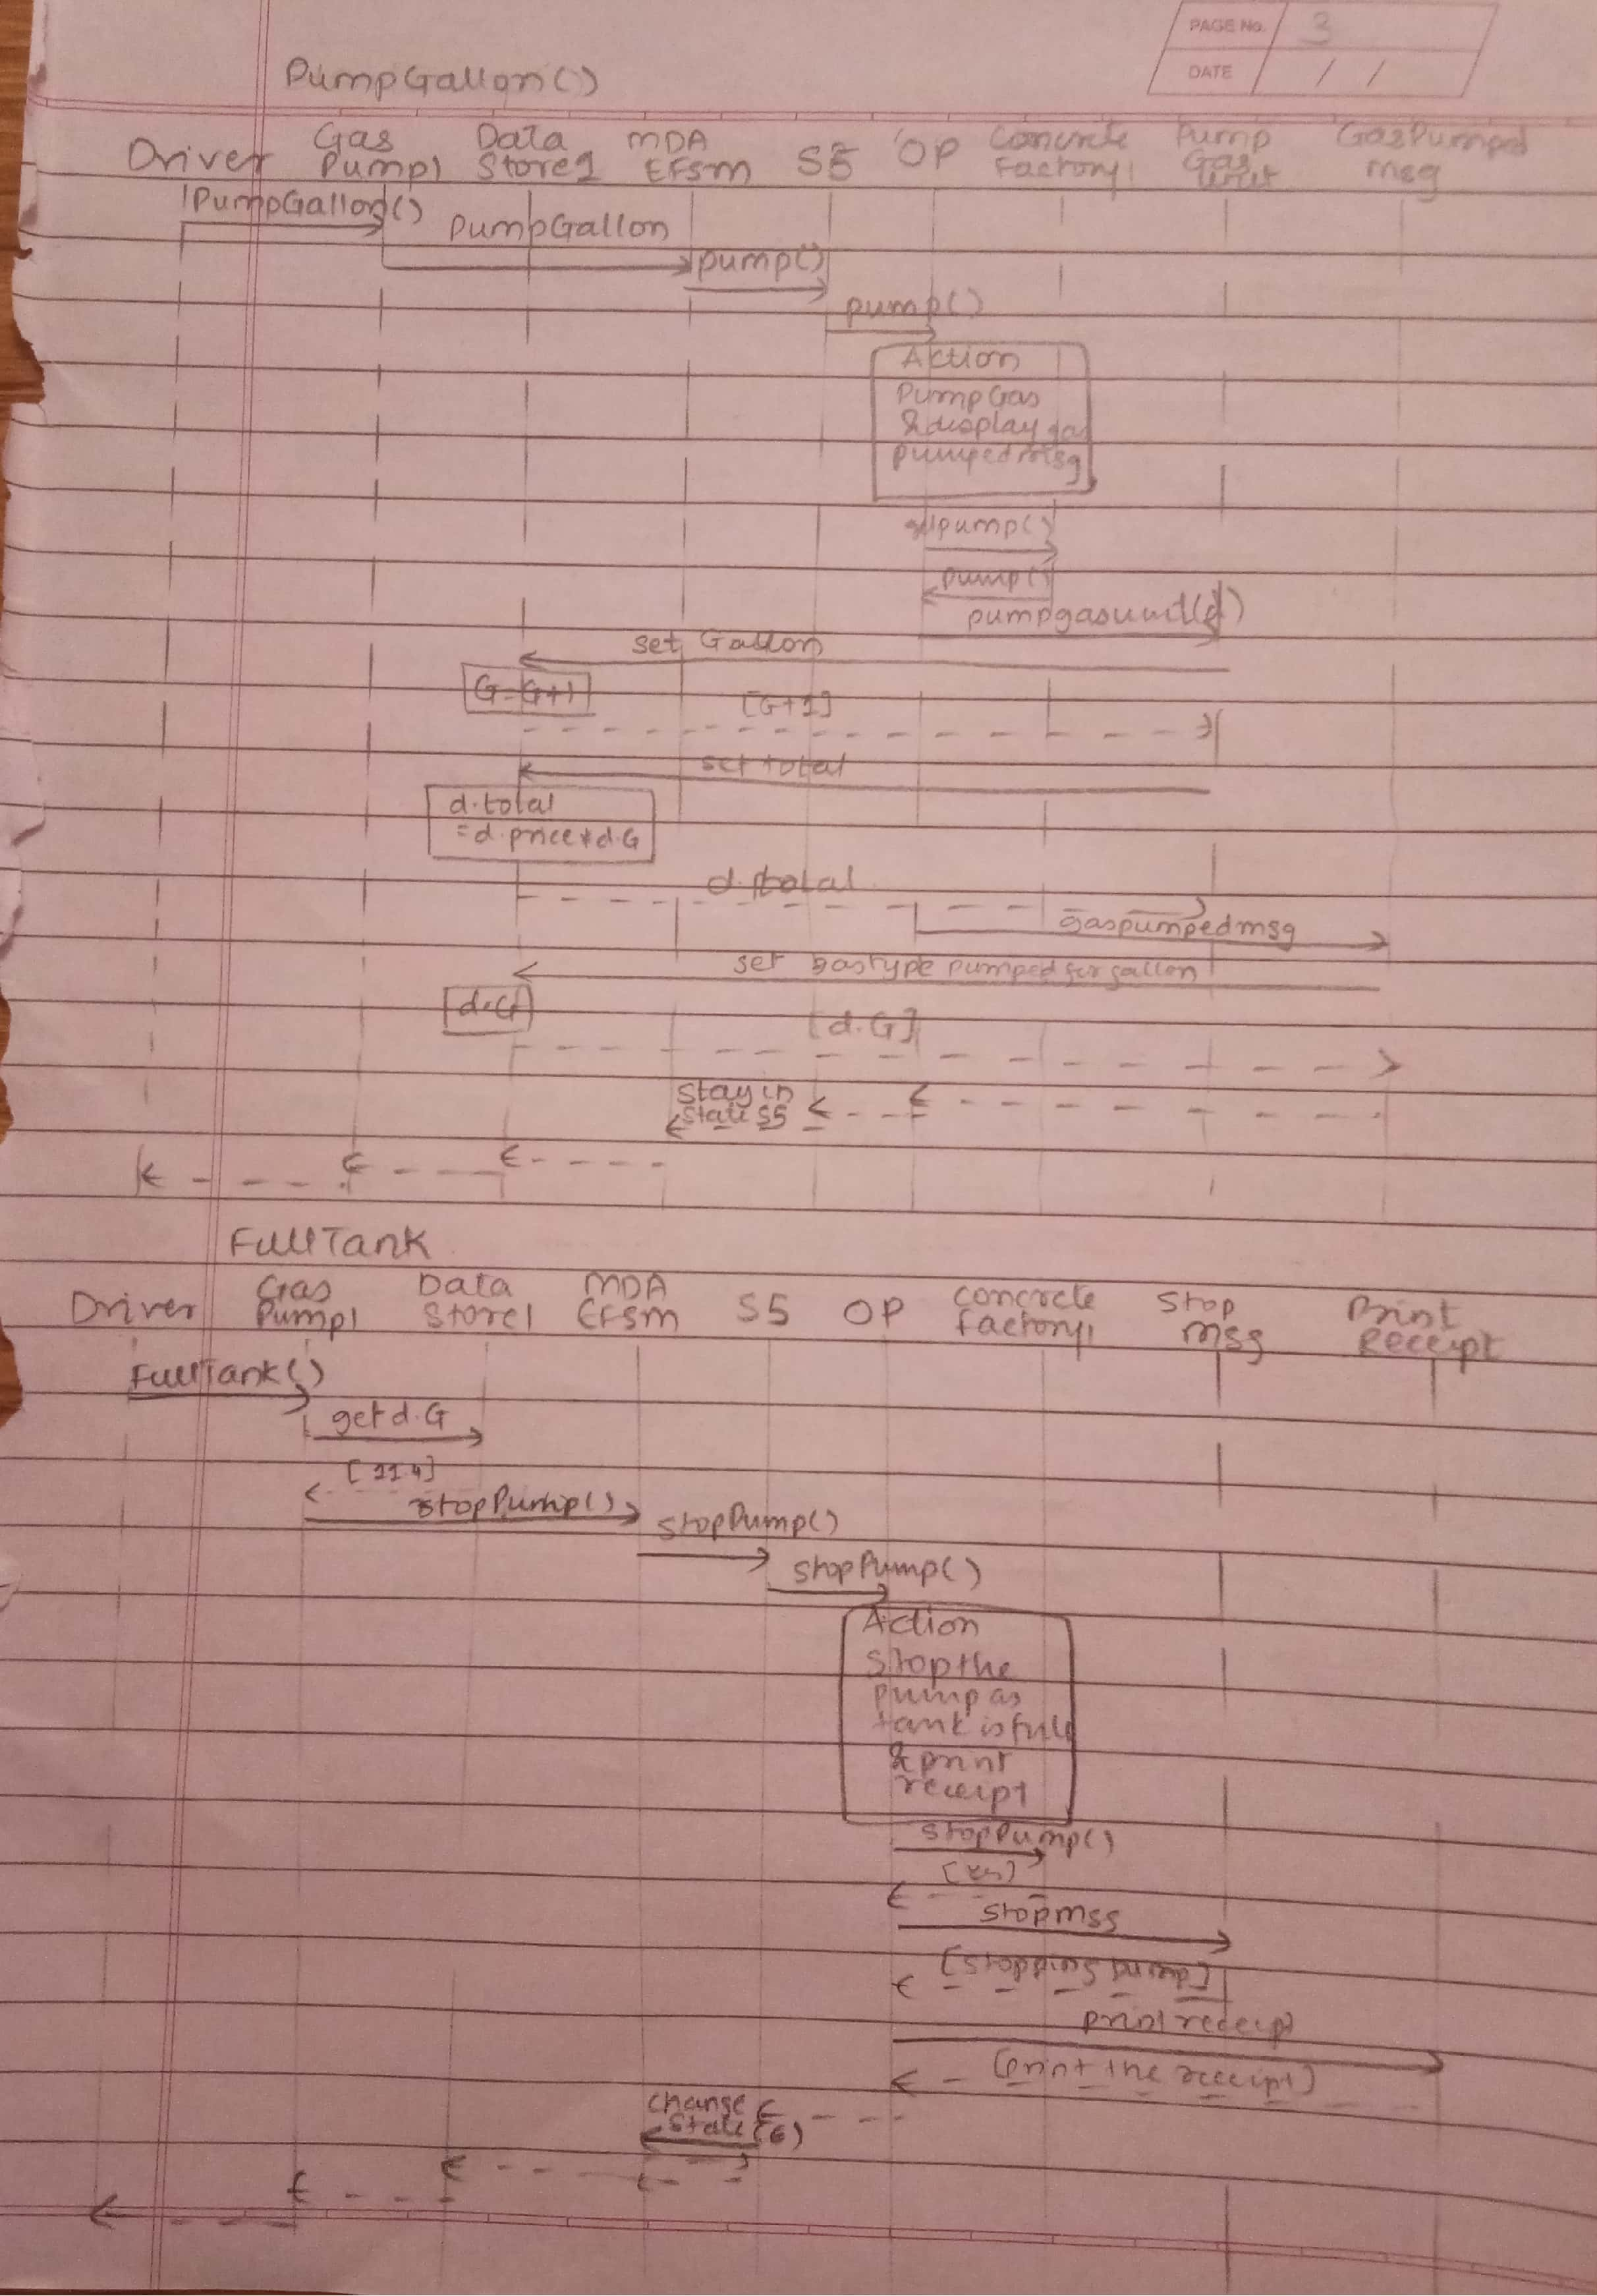 PAGE No. 3
DATE / /
PumpGallon()
Driver Gas Pump1 Data Store1 MDA EFSM S5 OP Concrete Factory1 Pump Gas Unit GasPumped Msg
PumpGallon()
PumpGallon
pump()
pump()
Action
PumpGas
& display ga
pumped msg
pump()
pump()
pumpgasunit(d)
set Gallon
G=G+1
[G+1]
set total
d.total
=d.price*d.G
d.total
gaspumpedmsg
set gastype pumped for gallon
d.G
[d.G]
Stay in
State S5
FullTank
Driver Gas Pump1 Data Store1 MDA EFSM S5 OP Concrete Factory1 Stop Msg Print Receipt
FullTank()
get d.G
[11.4]
stopPump()
stopPump()
stopPump()
Action
Stop the
pump as
tank is full
& print
receipt
stopPump()
stopmsg
[stopping pump]
print receipt
[print the receipt]
change
State(6)